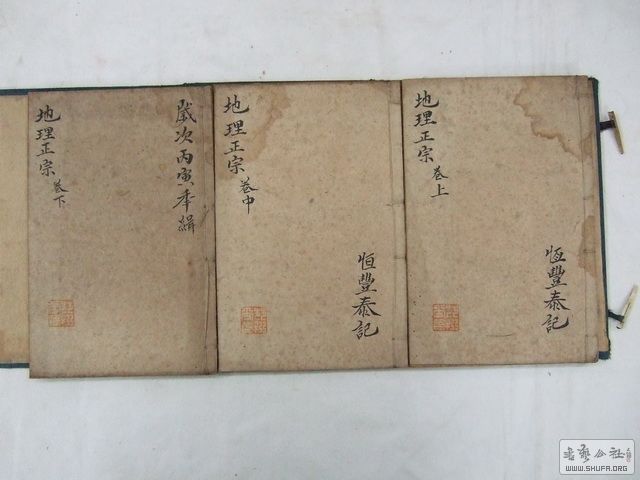 地理正宗 卷上
恆豐泰記
地理正宗 卷中
恒豐泰記
歲次丙寅年緝
地理正宗 卷下
書藝公社
WWW.SHUFA.ORG